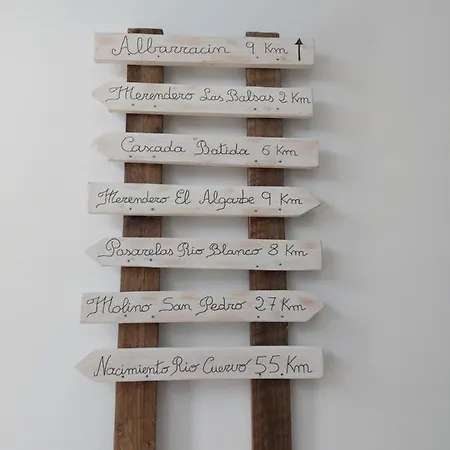 Albarracin 9 Km ↑
Merendero Las Balsas 2 Km
Cascada Batida 6 Km
Merendero El Algarbe 9 Km
Pasarelas Rio Blanco 8 Km
Molino San Pedro 27 Km
Nacimiento Rio Cuervo 55 Km